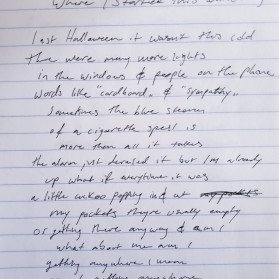 Where I Started
last Halloween it wasn't this cold
there were many more lights
in the windows & people on the phone
words like "cardboard" & "sympathy"
sometimes the blue steam
of a cigarette spell is
more than all it takes
the alarm just derailed it but I'm already
up what if everytime it was
a little cuckoo popping in & out
my pockets they're usually empty
or getting there anyway & am I
what about me am I
getting anywhere I mean